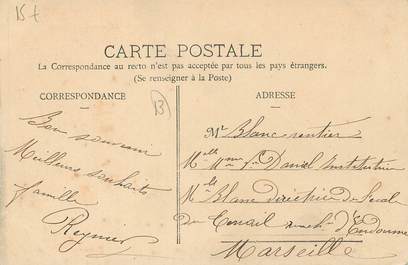 15+
CARTE POSTALE
La Correspondance au recto n'est pas acceptée par tous les pays étrangers.
(Se renseigner à la Poste)
CORRESPONDANCE
13
ADRESSE
Bon souvenir
Meilleurs souhaits
famille
Reynier
Mr Blanc rentier
Daniel Institutrice
Blanc directrice de
d'Endoume
Marseille